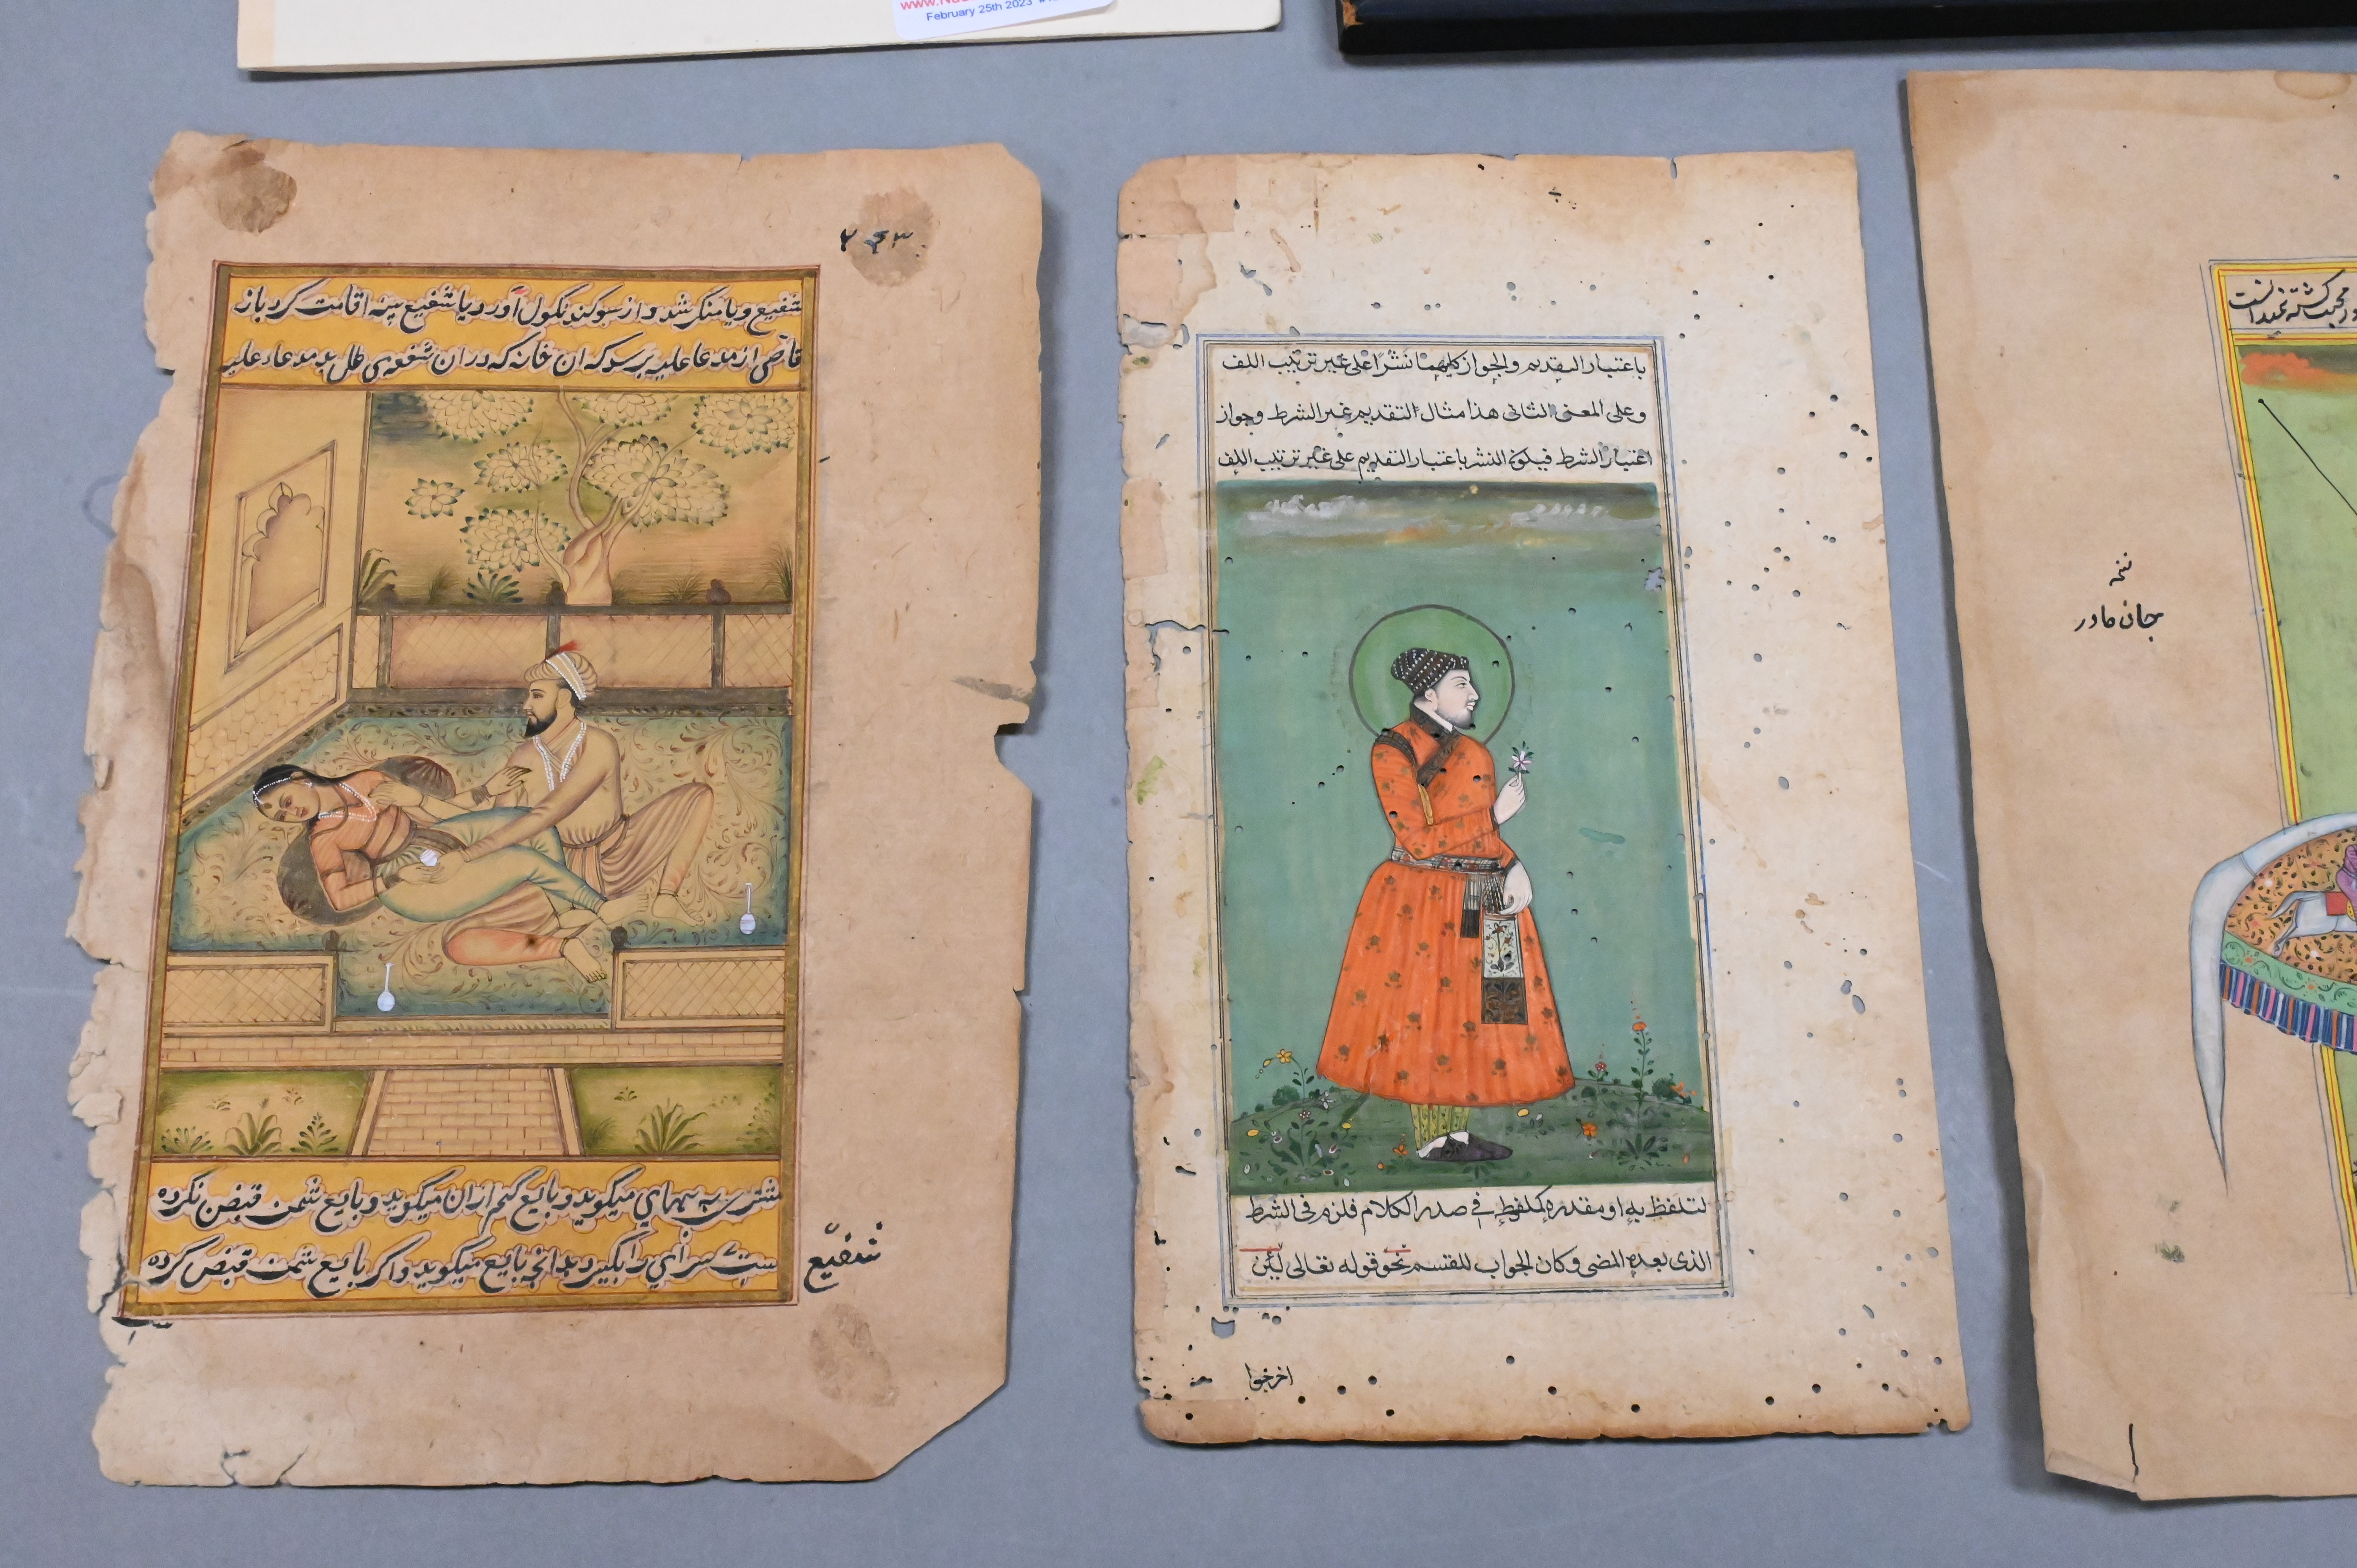 February 25th 2023
۲۴۳
شفیع و یا منکر شد و از سوکند نکول آورد یا شفیع بینه اقامت کرد باز
قاضی از مدعا علیه پرسد که ان خانه که در ان شفعه می طلبد مدعا علیه
مشتری به بهای میکوید و بایع کم از ان میکوید و بایع ثمن قبض نکرده
ست سرای را بگیرد بدانچه بایع میکوید و اکر بایع ثمن قبض کرده
شفیع
باعتبار التقديم والجواز كليهما نشرا على غير ترتيب اللف
وعلى المعنى الثانى هذا مثال التقديم غير الشرط وجواز
اعتبار الشرط فيكون النشر باعتبار التقديم على غير ترتيب اللف
لتلفظ به او مقدره كملفوظ فى صدر الكلام فلزم فى الشرط
الذى بعده المضى وكان الجواب للقسم نحو قوله تعالى لئن
اخرجوا
جان مادر